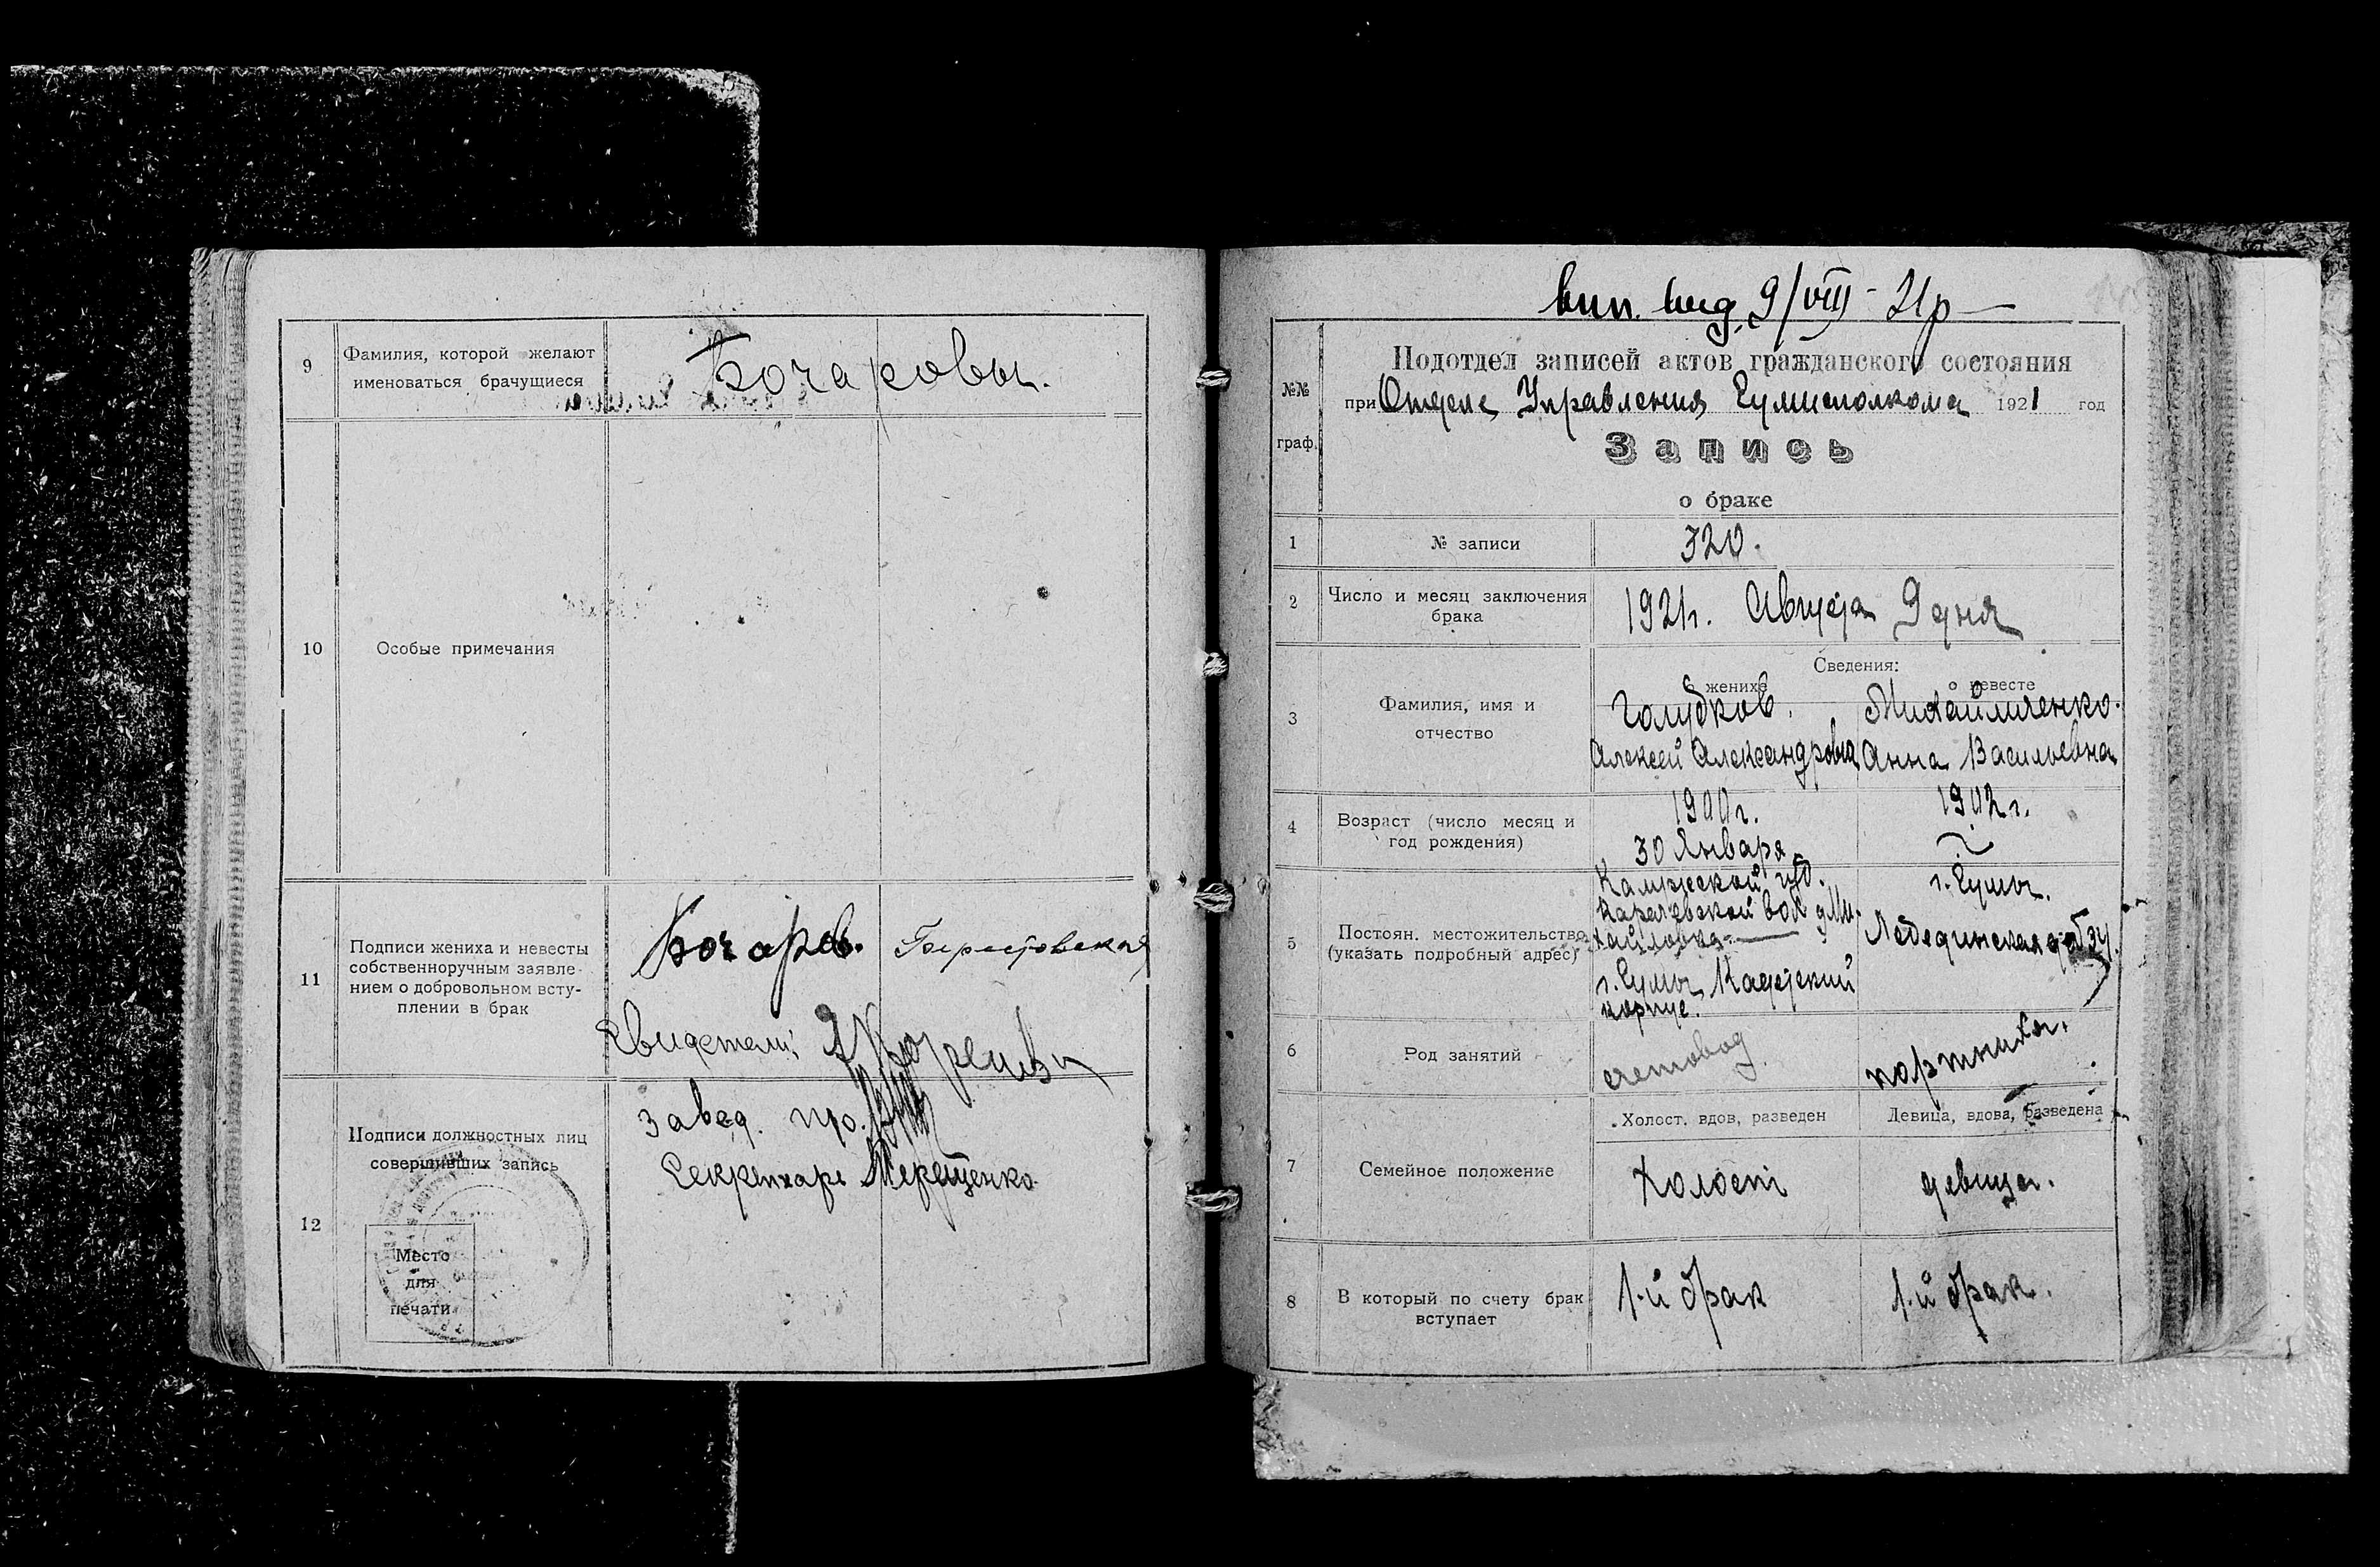 9
Фамилия, которой желают
именоваться брачущиеся
Бочаровы.
10
Особые примечания
11
Подписи жениха и невесты
собственноручным заявле-
нием о добровольном всту-
плении в брак
Бочаров.
Свидетели:
12
Подписи должностных лиц
совершивших запись
Завед.
Секретарь Мерещенко
Место
для
печати
вип. вид. 9/VIII - 21р
№№
граф.
Подотдел записей актов гражданского состояния
при Отделе Управления Сумисполкома 1921 год
Запись
о браке
1
№ записи
320.
2
Число и месяц заключения
брака
1921г. Августа 9 дня
3
Фамилия, имя и
отчество
Сведения:
о женихе
о невесте
Голубков.
Михайличенко.
Алексей Александрович
Анна Васильевна
4
Возраст (число месяц и
год рождения)
1900г.
30 Января
1902 г.
5
Постоян. местожительство
(указать подробный адрес)
Калужской губ.
вол. д. Ми-
хайловка
г. Сумы, Кадетский
корпус.
г. Сумы.
Лебединская
6
Род занятий
счетовод
портниха.
7
Семейное положение
Холост, вдов, разведен
Девица, вдова, разведена
Холост
девица.
8
В который по счету брак
вступает
1-й брак
1-й брак.